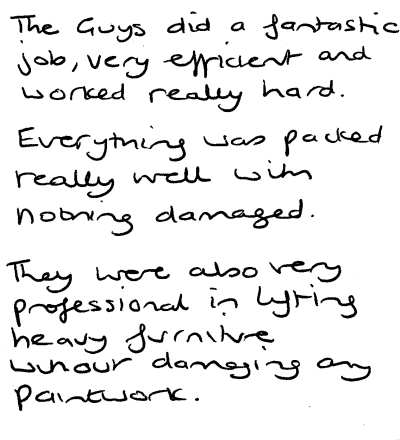 The Guys did a fantastic
job, very efficient and
worked really hard.
Everything was packed
really well with
nothing damaged.
They were also very
professional in lifting
heavy furniture
without damaging any
paintwork.